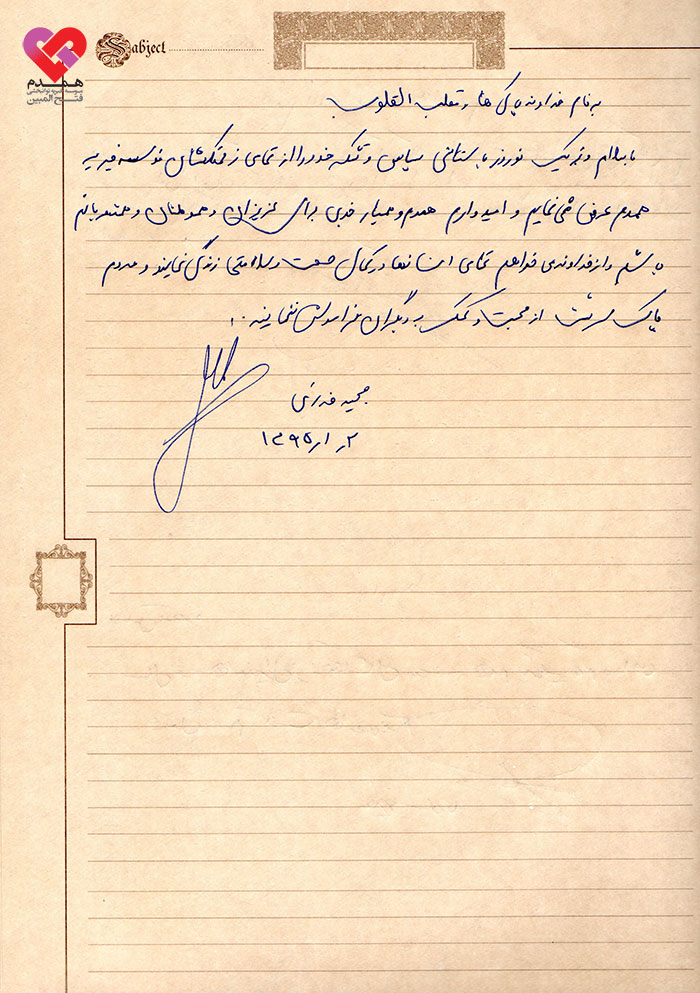 همدم
موسسه خیریه توانبخشی
فتح المبین
Sabject
به نام خداوند پاکی ها و مقلب القلوب
با سلام و تبریک نوروز باستانی سپاس و تشکر خود را از تمامی زحمتکشان موسسه خیریه
همدم عرض می نمایم و امیدوارم همدم و همیار خوبی برای عزیزان و هموطنان و همشهریانم
باشم و از خداوند می خواهم تمامی انسانها در کمال صحت و سلامتی زندگی نمایند و مردم
پاک سرشت از محبت و کمک به دیگران فراموش ننمایند..
مجید
۱۳۹۵/۱/۲